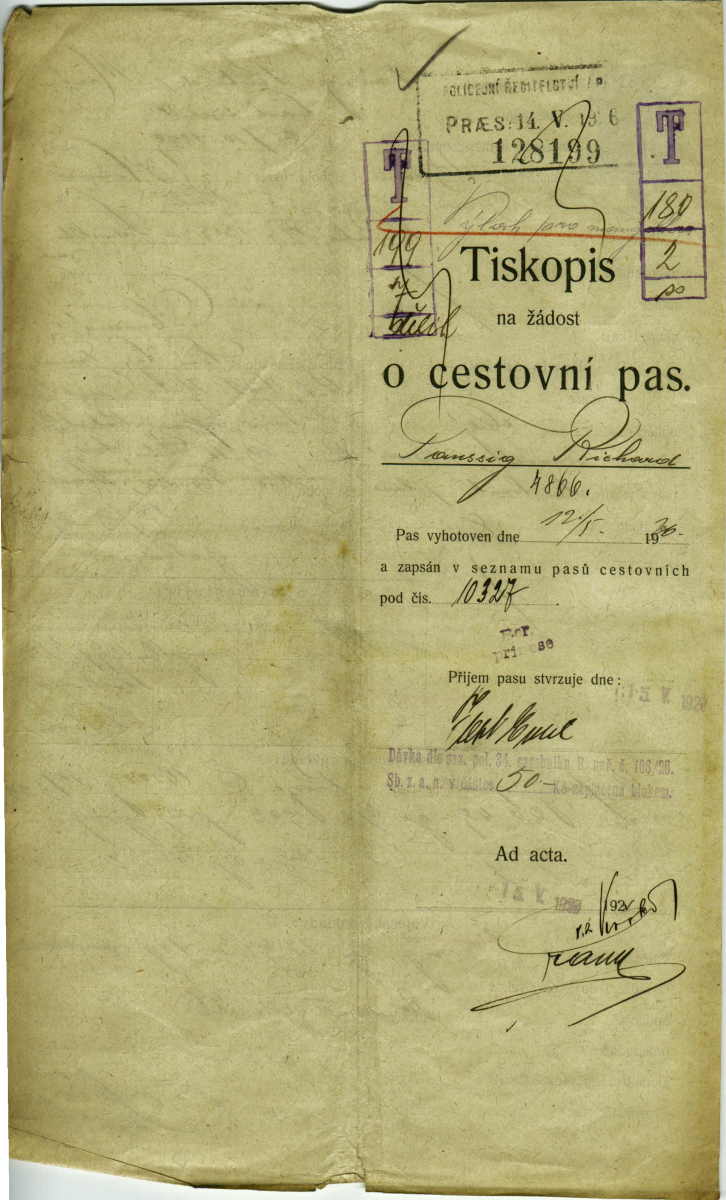 POLICEJNÍ ŘEDITELSTVÍ
PRÆS: 14. V. 6
128199
T
T
180
199
2
Tiskopis
na žádost
o cestovní pas.
Taussig Richard
4866.
Pas vyhotoven dne 12./5. 19
a zapsán v seznamu pasů cestovních
pod čís. 10327
Přijem pasu stvrzuje dne:
15 V
Dávka dle saz. pol. 34. sazebníku B. nař. č. 166/26.
Sb. z. a. n. v částce 50.- Kč zaplacena kolkem.
Ad acta.
15 V
192